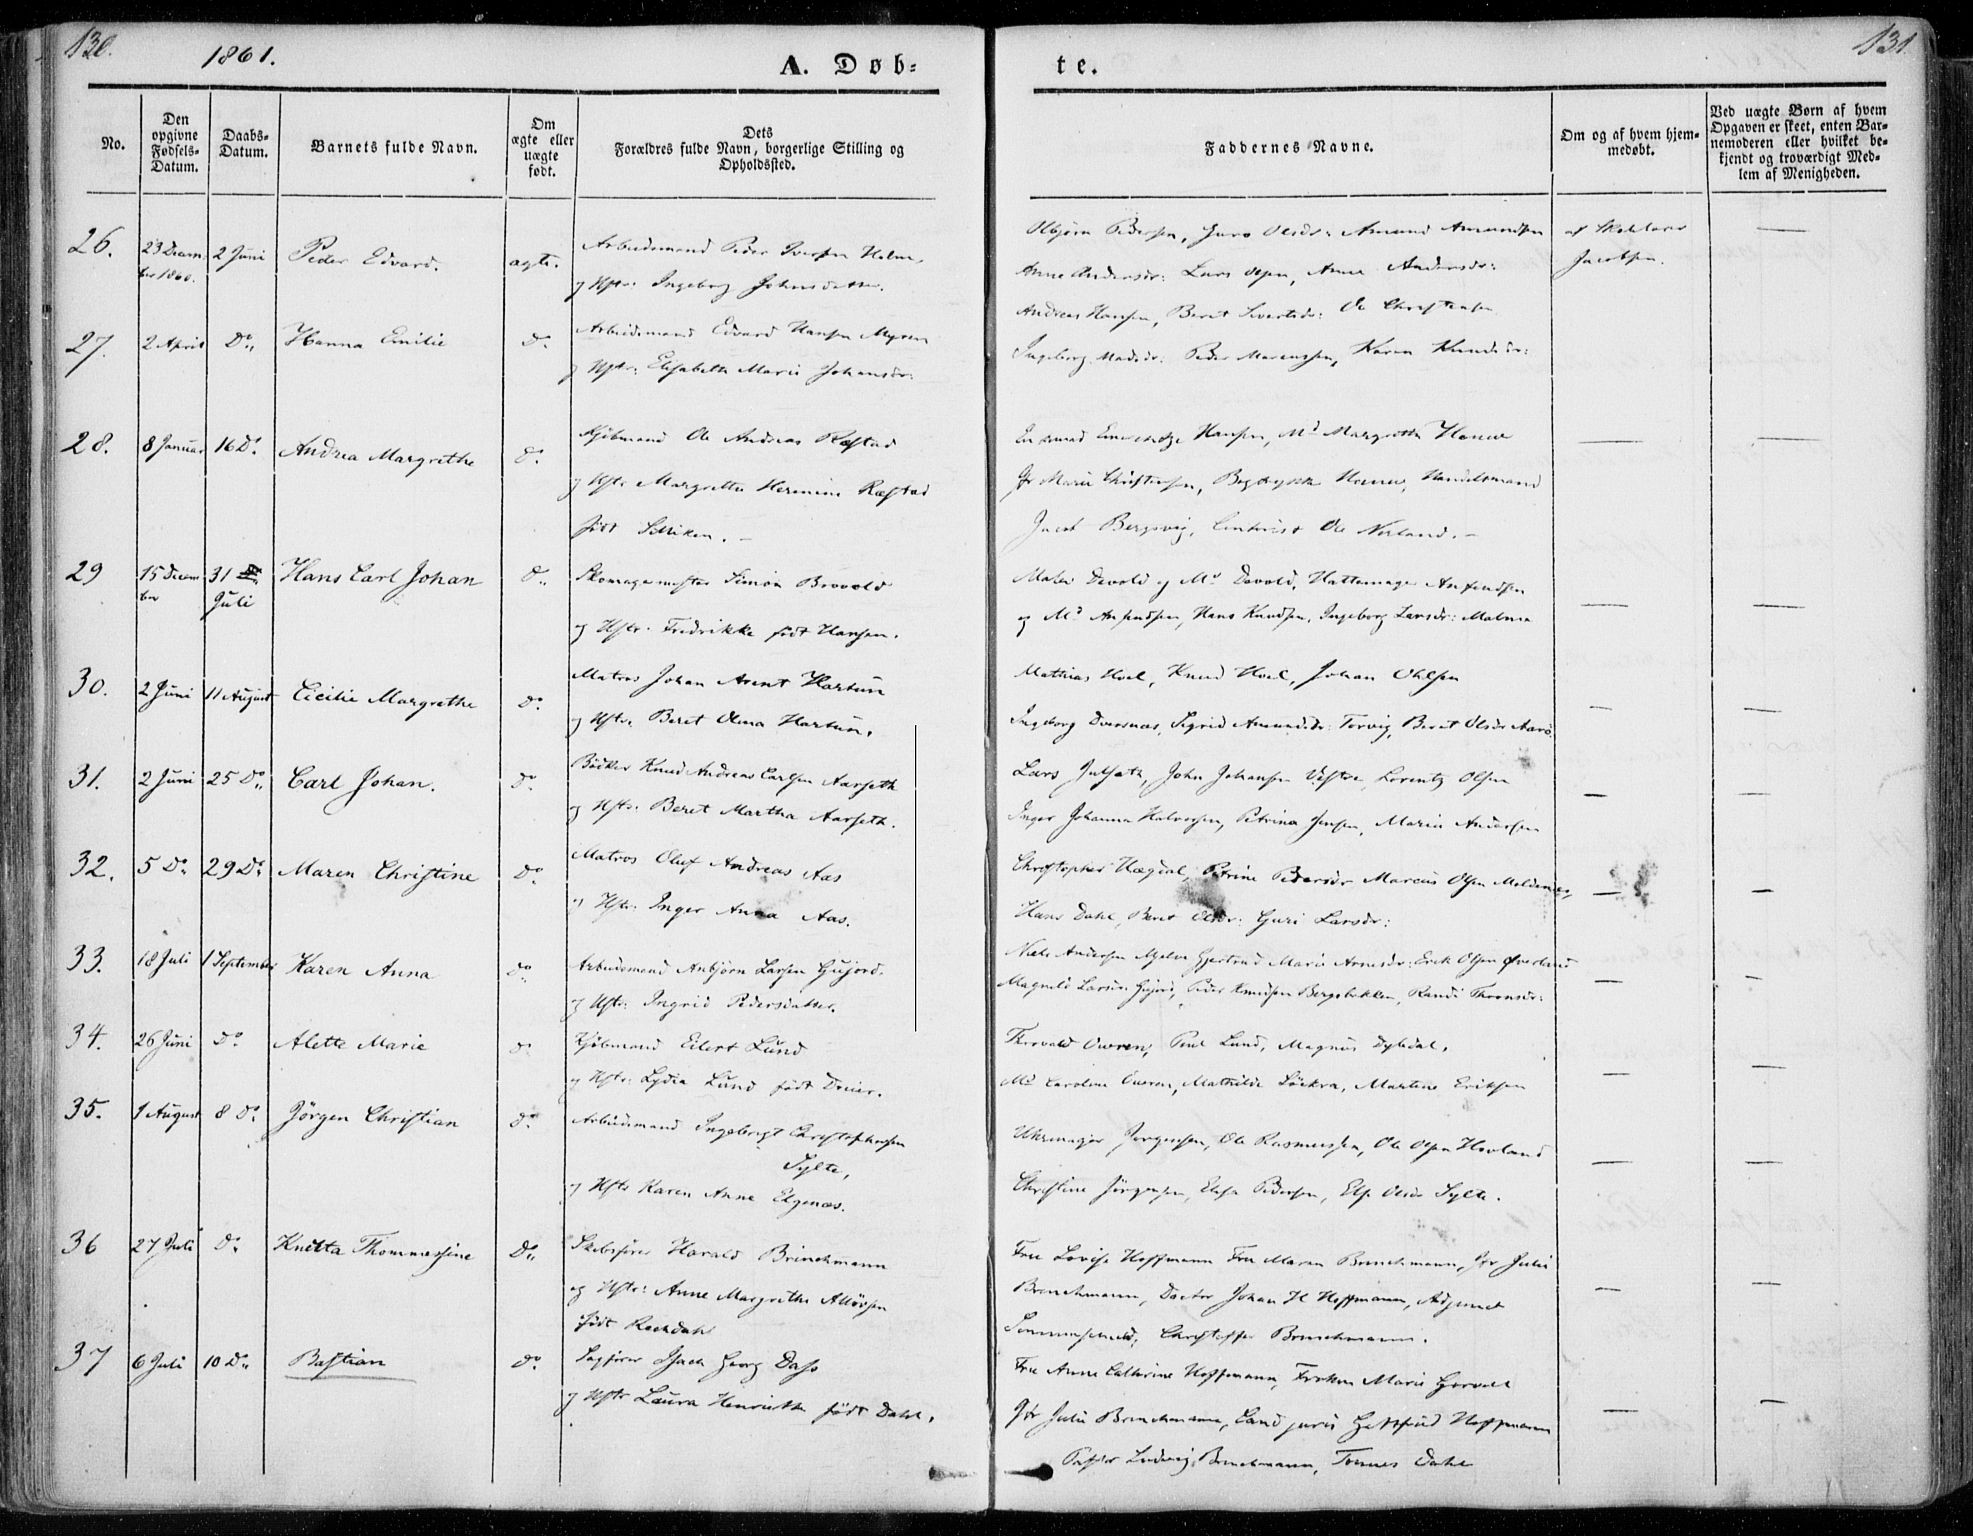 130.
1861.
A. Døb=
te.
131.
No.
Den opgivne Fødsels-Datum.
Daabs-Datum.
Barnets fulde Navn.
Om ægte eller uægte født.
Dets
Forældres fulde Navn, borgerlige Stilling og
Opholdssted.
Faddernes Navne.
Om og af hvem hjem-
medøbt.
Ved uægte Børn af hvem
Opgaven er skeet, enten Bar-
nemoderen eller hvilket be-
kjendt og troværdigt Med-
lem af Menigheden.
26. 23 Decem- 2 Juni Peder Edvard. ægte. Arbeidsmand Peder Iversen Holm
ber 1860. og Hstr: Ingeborg Johnsdatter.
Pedersen, Guro Olsdr: Amund Amundsen
Anne Andersdr: Lars Anne Andersdr:
af Skolelærer
Jacobsen.
27. 2 April Do. Hanna Emilie do Arbeidsmand Edvard Hansen Myren
og Hstr: Elisabeth Marie Johansdr:
Andreas Hansen, Beret Sivertsdr: Ole Christensen
Ingeborg Madsdr: Peder Karen Knudsdr:
28. 8 Januar 16 Do. Andrea Margrethe do. Kjøbmand Ole Andreas Røstad
og Hstr Margrethe Hermine Røstad
født
Hansen, Md Margrethe
Jfr Marie Christensen, Handelsmand
Jacob Bergsvig, Ole
29 15 Decem 31 Hans Carl Johan do. Skomagermester Simon Brovold
ber Juli
og Hstr. Fredrikke født Hansen.
Maler Devold og Md Devold, Hattemager
og Md Hans Knudsen, Ingeborg Larsdr: Malmen
30. 2 Juni 11 August Cicilie Margrethe do. Matros Johan Arent Hartun
og Hstr: Beret Olena Hartun.
Mathias Hoel, Knud Hoel, Johan Ohlsen
Ingeborg Sigrid Amundsdr: Torvig, Beret Olsdr Aarø.
31. 2 Juni 25 Do. Carl Johan. do. Bødker Knud Andreas Carlsen Aarseth
og Hstr. Beret Martha Aarseth.
Lars Julseth, John Johansen Lorentz Olsen
Inger Johanna Halvorsen, Petrina Jensen, Maria Andersen
32. 5 Do. 29 Do. Maren Christine do. Matros Oluf Andreas Aas
og Hstr: Inger Anna Aas.
Christopher Hægdal, Petrine Pedersdr Marcus Olsen
Hans Dahl, Beret Olsdr: Guri Larsdr:
33. 18 Juli 1 September Karen Anna do. Arbeidsmand Anbjørn Larsen Gujord.
og Hstr: Ingrid Pedersdatter.
Niels Andersen Gjertrud Marie Arnesdr: Erik Olsen Øverland
Magnild Larsdr: Gujord, Peder Knudsen Bergsbakken, Randi Thronsdr:
34. 26 Juni Do. Alette Marie do. Kjøbmand Eilert Lund
og Hstr: Lydia Lund født
Thorvald Owren, Poul Lund, Magnus Dybdal.
Md Caroline Owren, Mathilde Martine Eriksen
35. 1 August 8 Do. Jörgen Christian do. Arbeidsmand Ingebrigt Christophersen
Sylte,
og Hstr Karen Anne Elgenæs.
Uhrmager Jörgensen, Ole Rasmussen, Ole Olsen Hovland
Christine Jörgensen, Pedersen, Olsdr Sylte.
36 27 Juli Do. Knutta Thommesine Do. Skibsfører Harald Brinchmann
og Hstr: Anne Margrethe
født
Fru Lovise Hoffmann Fru Maren Brinchmann, Jfr Julie
Brinchmann, Doctor Johan H Hoffmann, Adjunct
Christoffer Brinchmann.
37 6 Juli 10 Do. Bastian do. Sagfører Isach Georg Dass
og Hstr Laura Henriette født Dahl.
Fru Anne Cathrine Hoffmann, Frøken Marie
Jfr Julie Brinchmann, Cand juris Hoffmann
Ludvig Brinchmann, Tønnes Dahl